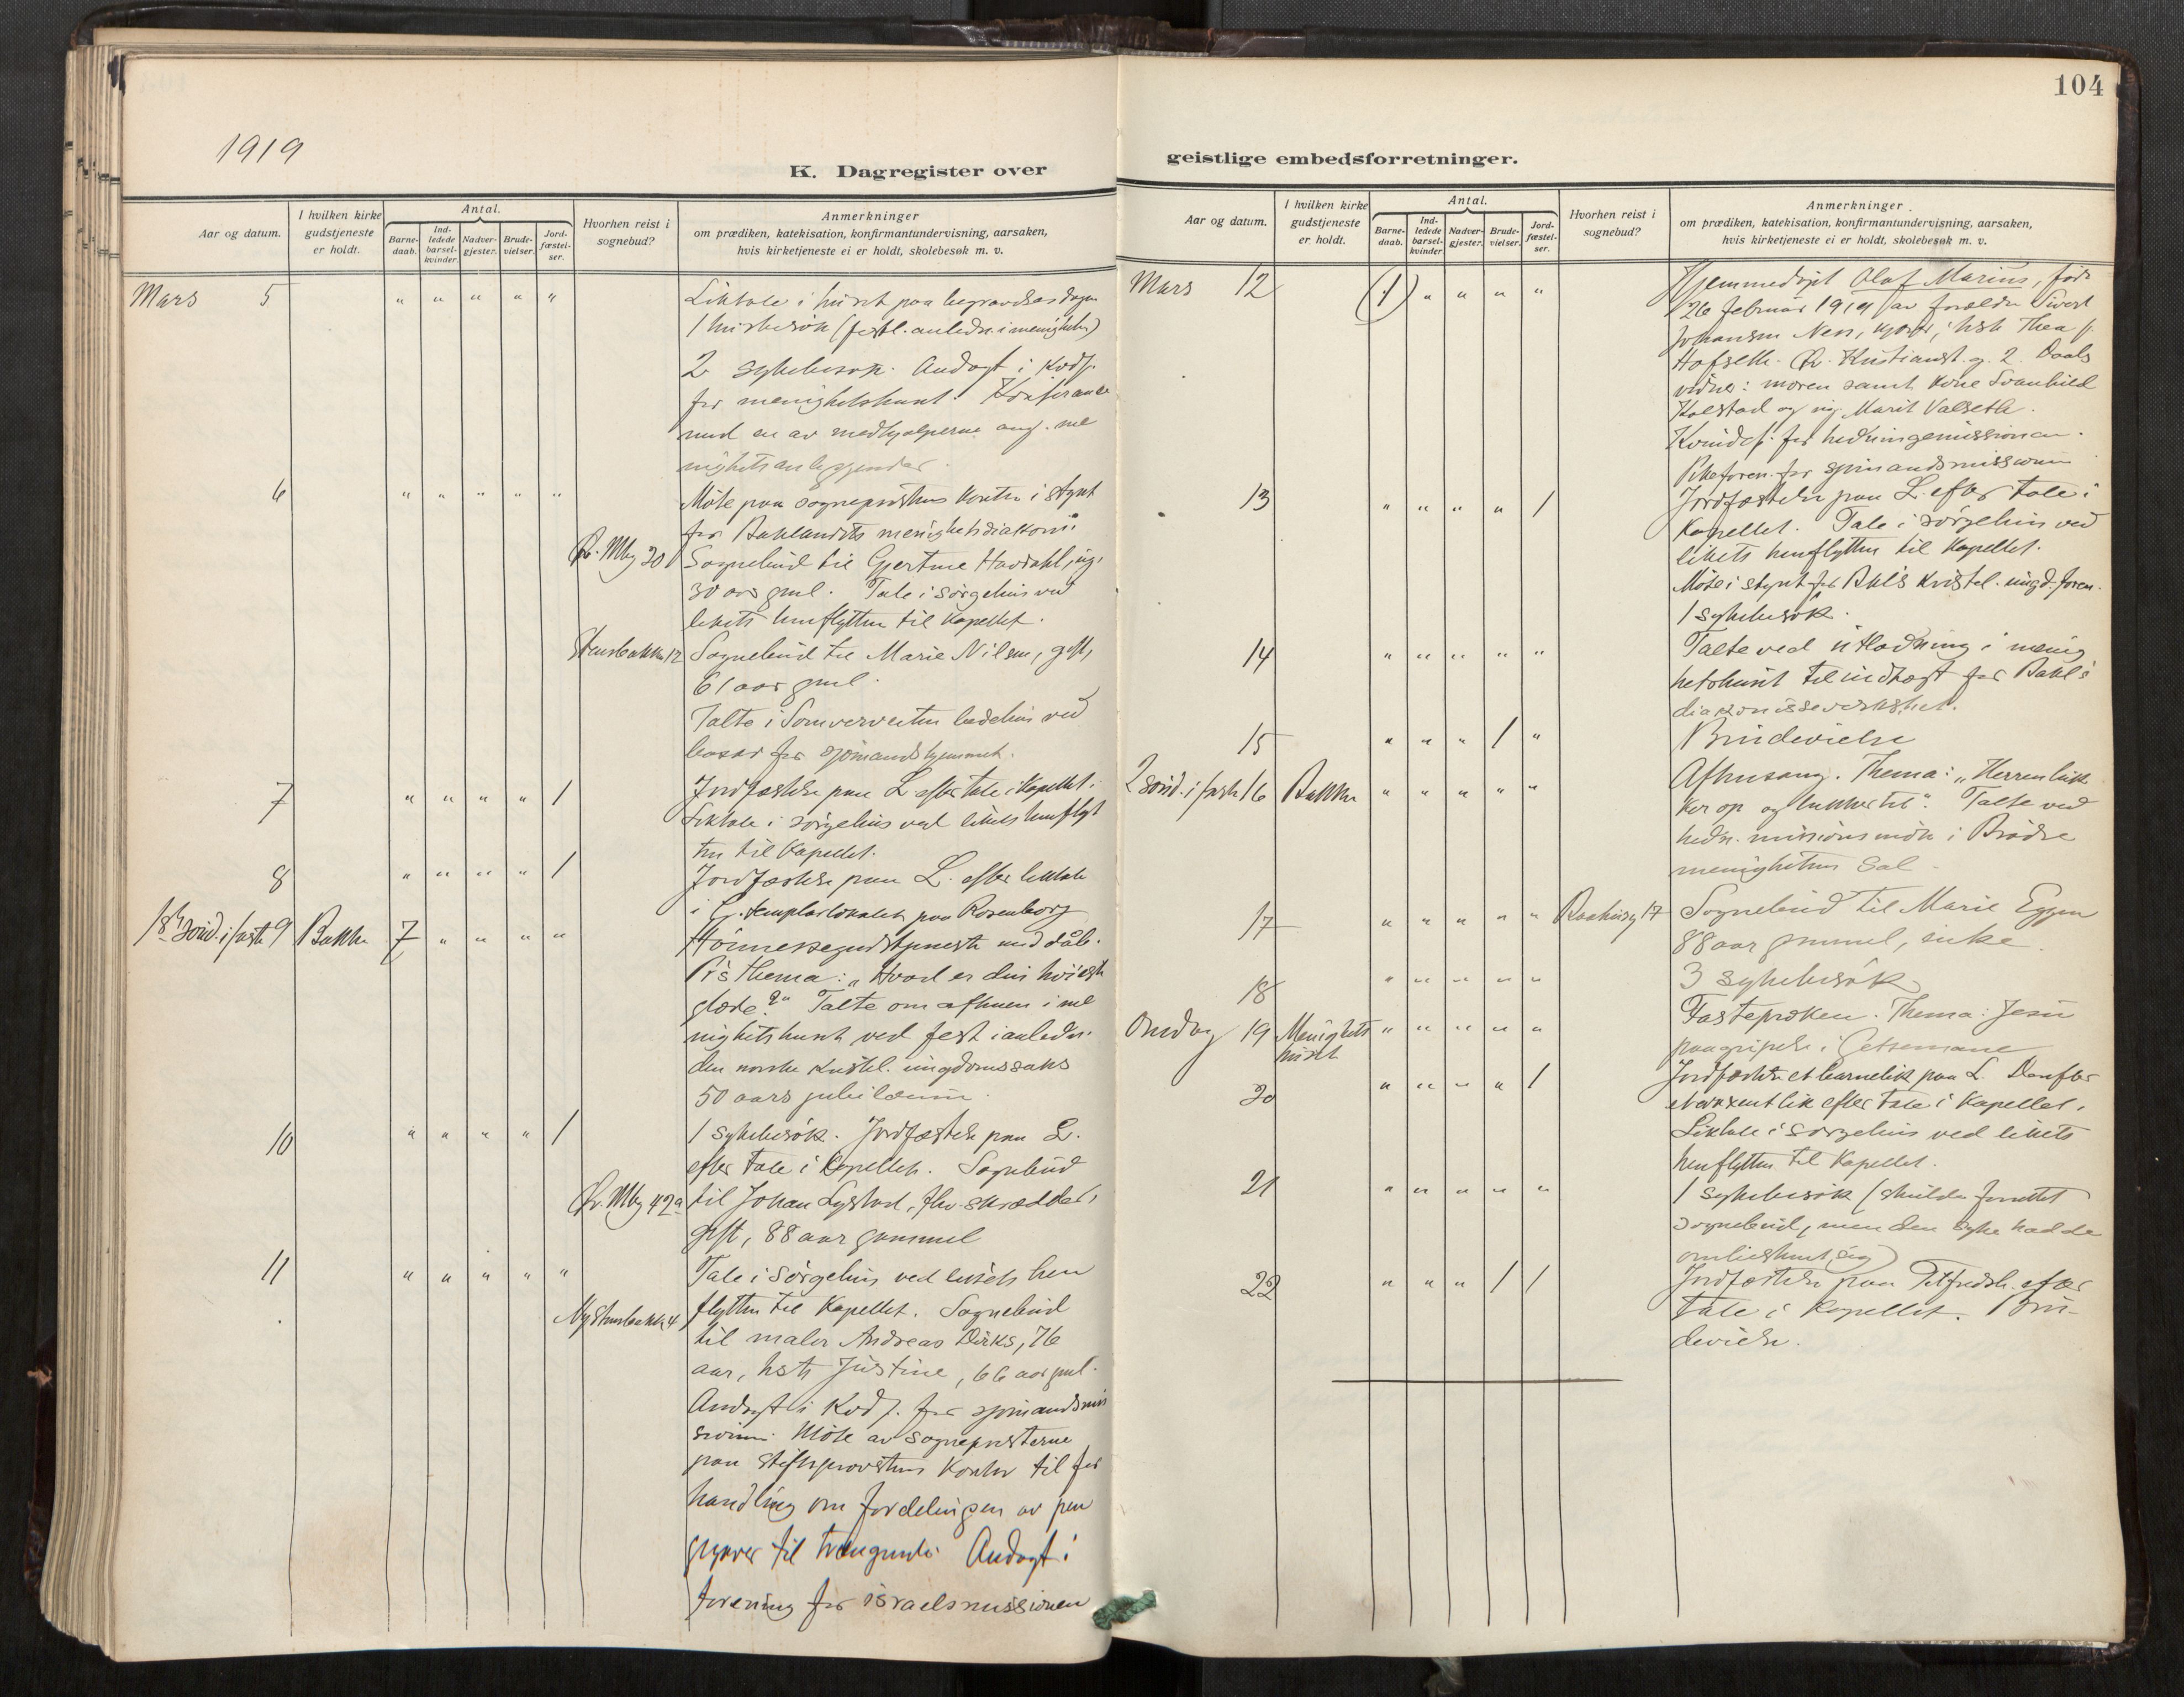 1919
K. Dagregister over
Aar og datum.
I hvilken kirke gudstjeneste er holdt.
Antal.
Barne-daab.
Ind-ledede barsel-kvinder.
Nadver-gjester.
Brude-vielser.
Jord-fæstel-ser.
Hvorhen reist i sognebud?
Anmerkninger
om prædiken, katekisation, konfirmantundervisning, aarsaken,
hvis kirketjeneste ei er holdt, skolebesøk m. v.
Mars 5 " " " " " Liktale i huset paa begravelsesdagen
1 husbesøk (
2 sykebesøk. Andagt i Kvdf.
for menighetshuset. Konferance
med en av medhjælperne ang. me
nighetsanliggender.
6 " " " " " Møte paa sogneprestens kontor i styret
for Baklandets menighetsdiakoni
Ø. Mbg 20 Sognebud til Gjertine Havdahl, ug.
30 aar gml. Tale i sørgehus ved
likets henflytten til Kapellet.
12 Sognebud til Marie Nilsen, gift,
61 aar gml.
Talte i bedehus ved
basar for sjömandshjemmet.
7 " " " " 1 Jordfæstelse paa L. efter tale i Kapellet.
Liktale i sørgehus ved likets henflyt
ten til Kapellet.
8 " " " " 1 Jordfæstelse paa L. efter liktale
i G. templarlokalet paa Rosenborg
1ste sønd. i faste 9 Bakke 7 " " " " Høimessegudstjeneste med dåb.
Pr's Thema: „Hvad er din høieste
glæde?" Talte om aftenen i me
nighetshuset ved fest i anledn.
den norske kristel. ungdomssaks
50 aars jubilæum.
10 " " " " 1 1 sykebesøk. Jordfæstelse paa L.
efter tale i Kapellet. Sognebud
Ø. Mbg 42a til Johan Lystad, fhv. skrædder,
gift, 88 aar gammel
11 " " " " " Tale i sørgehus ved likets hen
4 flytten til Kapellet. Sognebud
til maler Andreas Dirks, 76
aar, hstr Justine, 66 aar gml.
Andagt i Kvdf. for sjömandsmis
sionen. Møte av sognepresterne
paa stiftsprovstens kontor til for
handling om fordelingen av pen
gegaver til trængende. Andagt i
forening for israelsmissionen
104
geistlige embedsforretninger.
Aar og datum.
I hvilken kirke gudstjeneste er holdt.
Antal.
Barne-daab.
Ind-ledede barsel-kvinder
Nadver-gjester.
Brude-vielser.
Jord-fæstel-ser.
Hvorhen reist i sognebud?
Anmerkninger
om prædiken, katekisation, konfirmantundervisning, aarsaken,
hvis kirketjeneste ei er holdt, skolebesøk m. v.
Mars 12 (1) " " " " Hjemmedøpt Olaf Marius, født
26 februar 1919 av forældre Sivert
Johansen Ness, hstr Thea f.
Hofseth. Ø. Kristianst. g. 2. Daabs
vidner: moren samt kone Svanhild
Kolstad og ug. Marit Valseth.
Kvindef. for hedningemissionen.
Pikeforen. for sjömandsmissionen
13 " " " " 1 Jordfæstelse paa L. efter tale i
Kapellet. Tale i sørgehus ved
likets henflytten til Kapellet.
Møte i styret for Bakl's kristel. ungd. foren.
1 sykebesøk.
14 " " " " " Talte ved utlodning i menig
hetshuset til indtægt for Bakl's
diakonissevirksomhet.
15 " " " 1 " Brudevielse
2 sønd. i faste 16 Bakke " " " " " Aftensang. Thema: „Herren lukker
ker op og lukker til". Talte ved
hedn. missionsmøte i Brødre
menighetens sal.
17 " " " " " 17 Sognebud til Marie Eggen
88 aar gammel, enke.
18 " " " " " 3 sykebesøk
Onsdag 19 Menighets " " " " " Fasteprøken. Thema: Jesu
huset paagripelse i Getsemane
20 " " " " 1 Jordfæstelse et barnelik paa L. Derefter
et voxent lik efter tale i Kapellet.
Liktale i sørgehus ved likets
henflytten til Kapellet.
21 " " " " " 1 sykebesøk (skulde forrettet
sognebud, men den syke hadde
ombestemt sig)
22 " " " 1 1 Jordfæstelse paa efter
tale i Kapellet. 1 bru-
devielse.